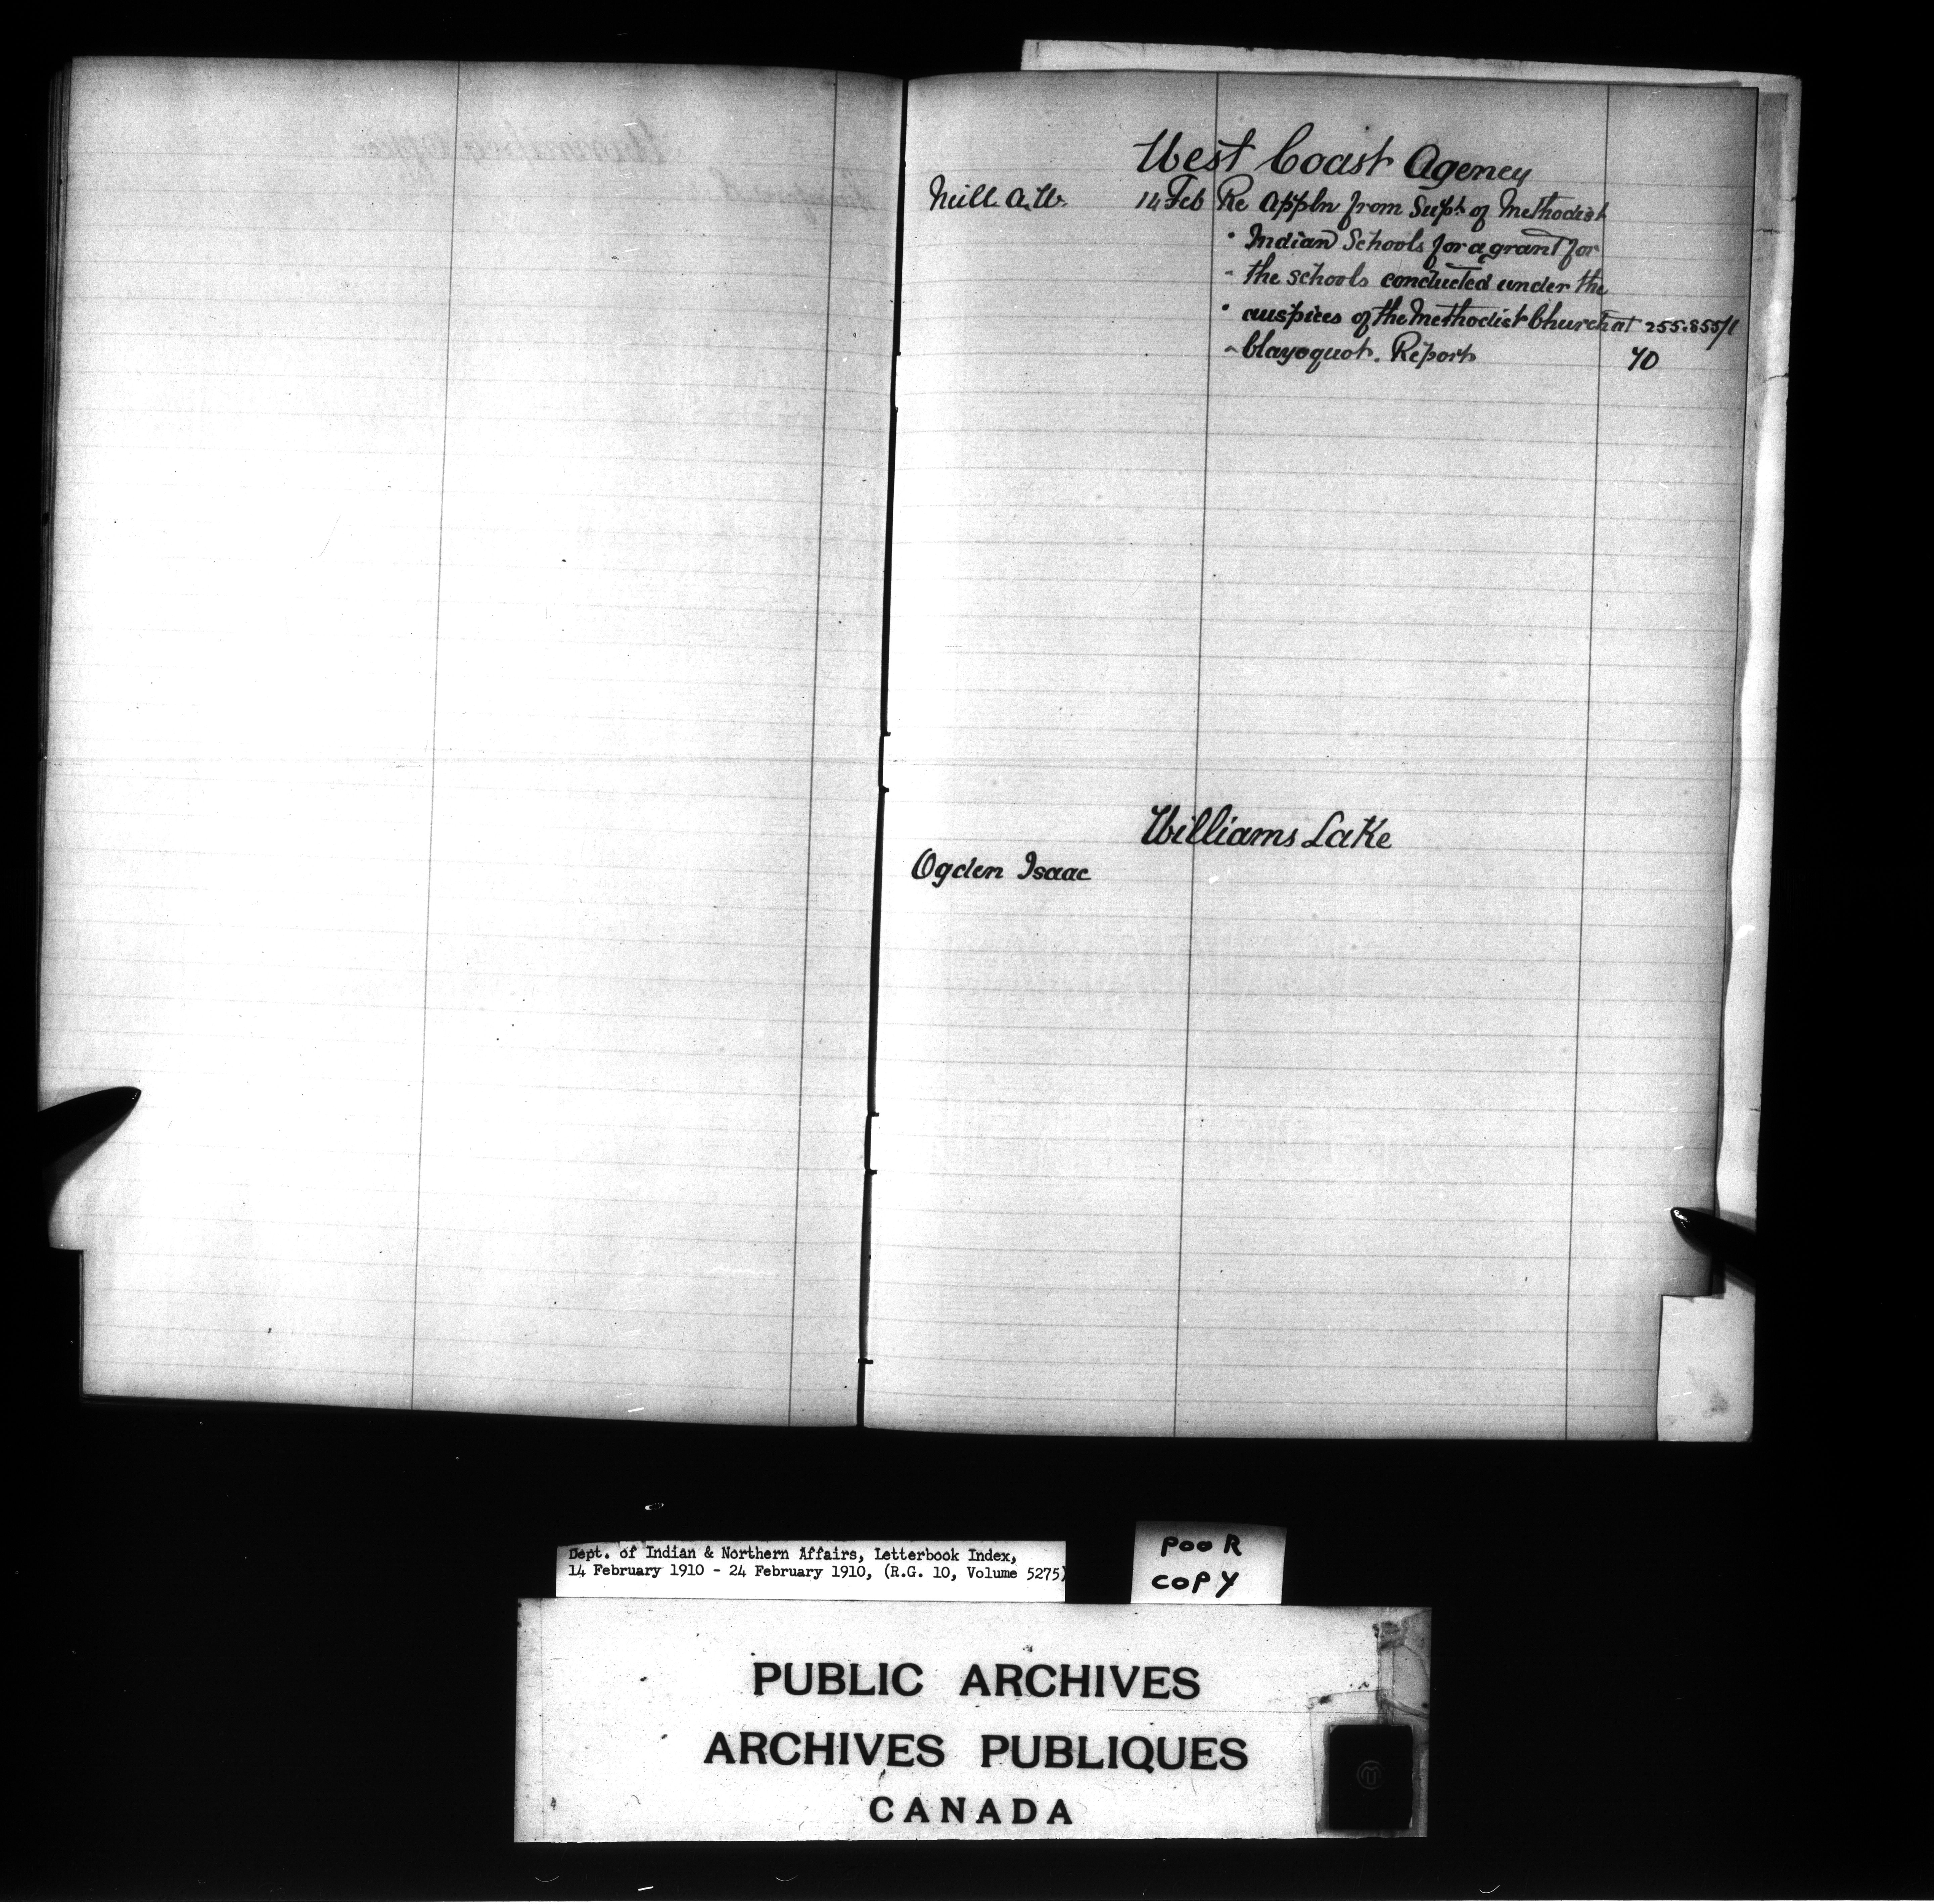 West Coast Agency
Neill A.W. 14 Feb Re Appln from Supt. of Methodist
" Indian Schools for a grant for
" the schools conducted under the
" auspices of the Methodist Church at 255.855/1
" Clayoquot. Report 40
Williams Lake
Ogden Isaac
Dept. of Indian & Northern Affairs, Letterbook Index,
14 February 1910 - 24 February 1910, (R.G. 10, Volume 5275)
POOR
COPY
PUBLIC ARCHIVES
ARCHIVES PUBLIQUES
CANADA